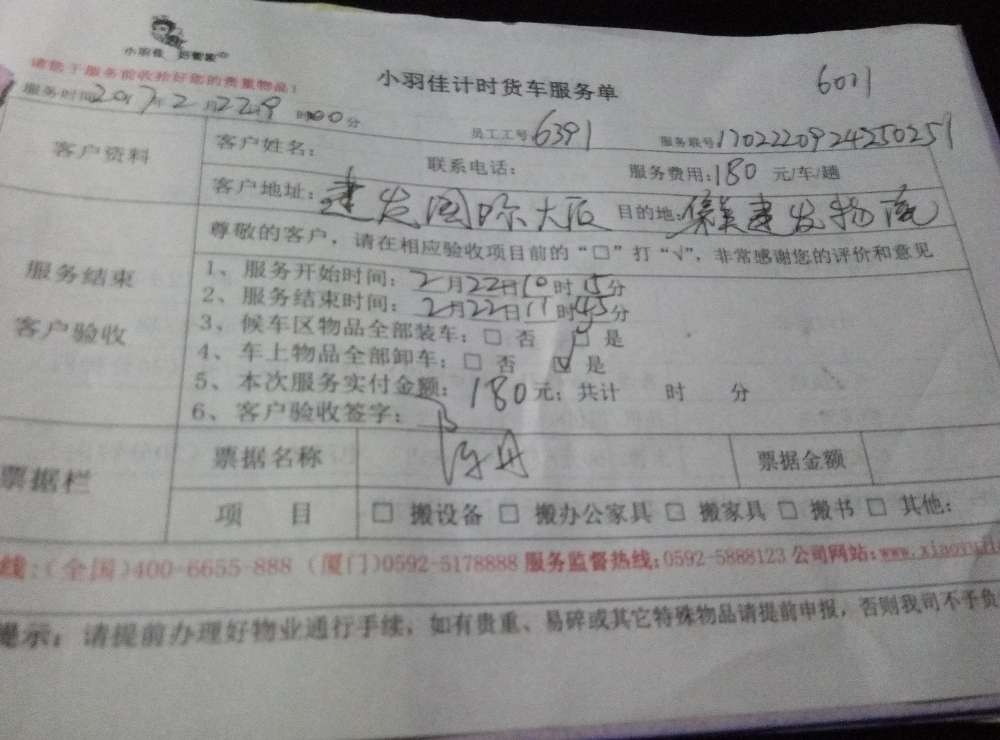 小羽佳
请您于服务前收拾好您的贵重物品！
小羽佳计时货车服务单
6011
服务时间2017年2月22日9时00分
员工工号6391
服务联号170222092425025​1
客户资料
客户姓名：
联系电话：
服务费用：180 元/车/趟
客户地址：建发国际大厦
目的地：建发物流
尊敬的客户，请在相应验收项目前的“□”打“√”，非常感谢您的评价和意见
服务结束
客户验收
1、服务开始时间：2月22日10时15分
2、服务结束时间：2月22日11时45分
3、候车区物品全部装车：□ 否 □ 是
4、车上物品全部卸车：□ 否 ☑ 是
5、本次服务实付金额：180元；共计 时 分
6、客户验收签字：
票据栏
票据名称
票据金额
项 目
□ 搬设备 □ 搬办公家具 □ 搬家具 □ 搬书 □ 其他：
线：（全国）400-6655-888 （厦门）0592-5178888 服务监督热线：0592-5888123 公司网站：www.xiaoyu
提示：请提前办理好物业通行手续，如有贵重、易碎或其它特殊物品请提前申报，否则我司不予负